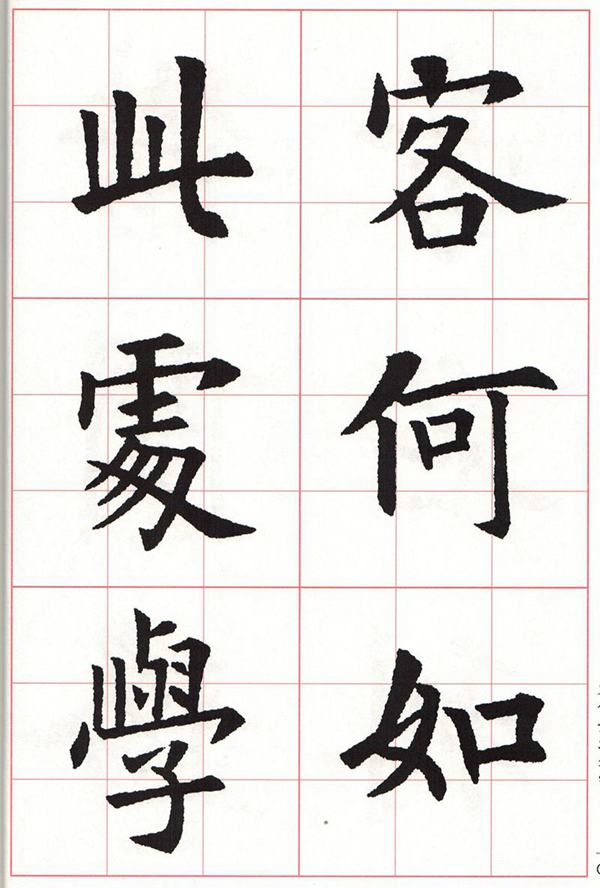 客何如
此處學